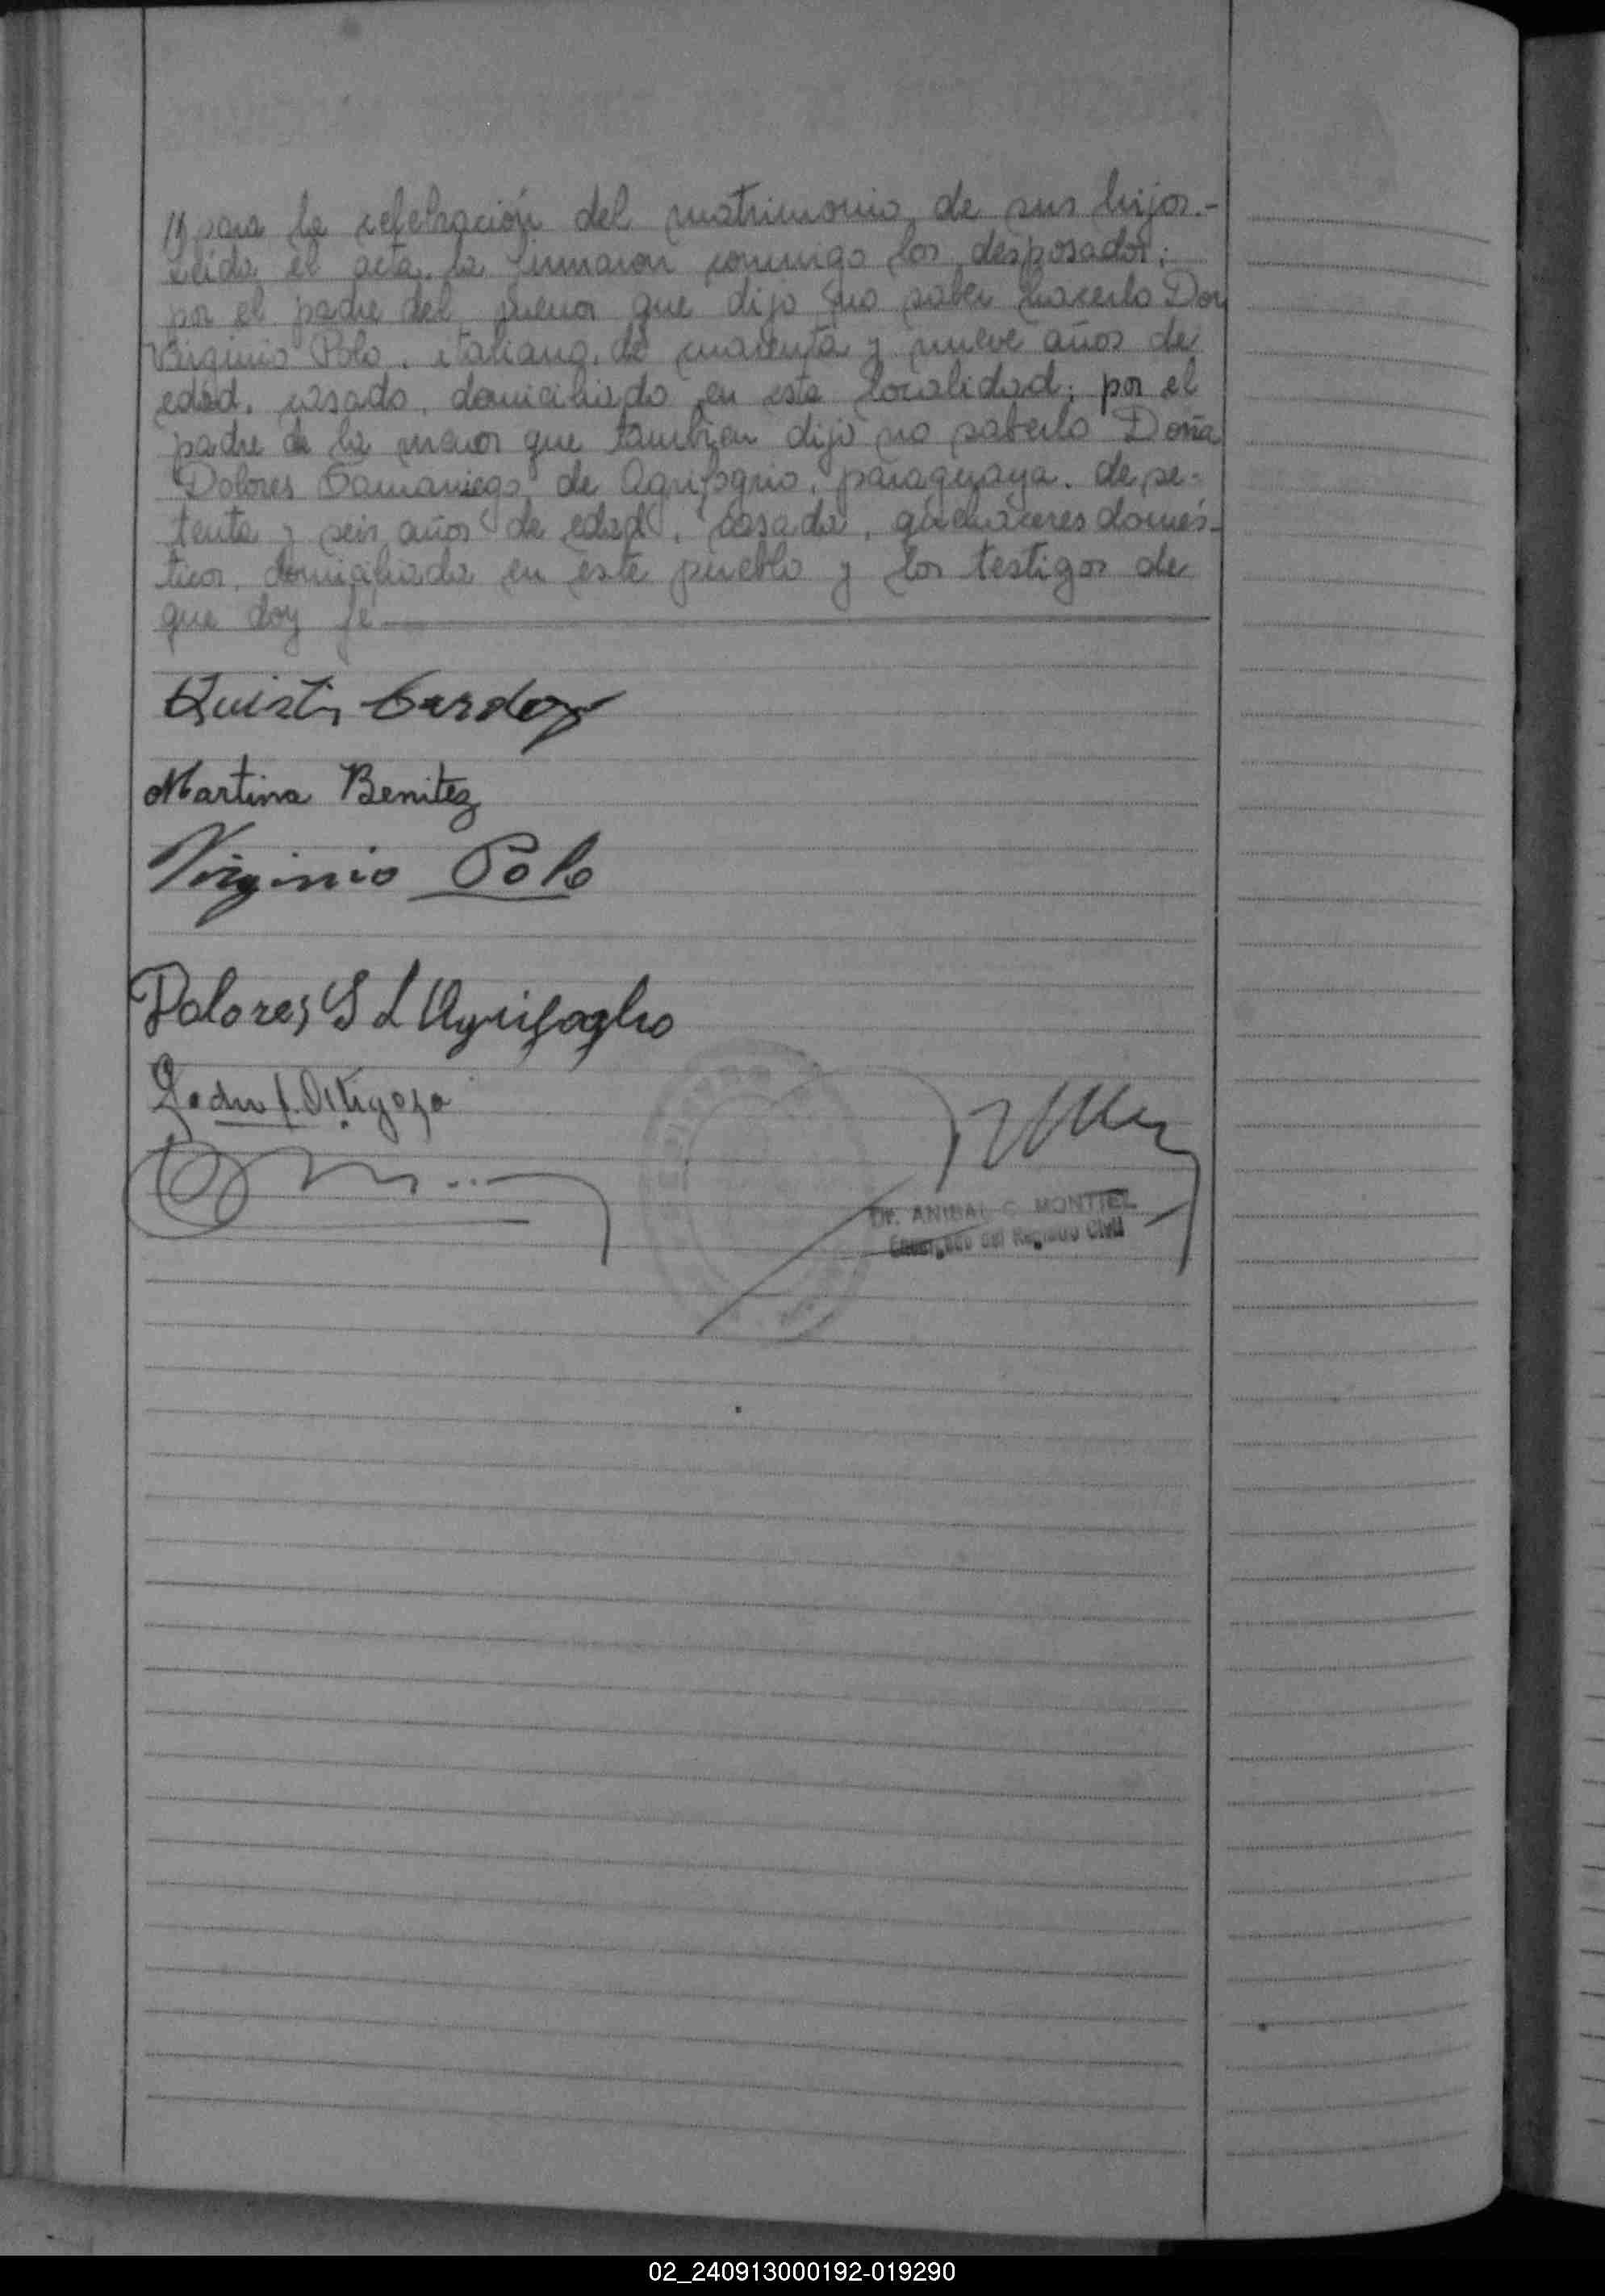 // para la celebración del matrimonio de sus hijos.-
Leida el acta, la firmaron conmigo los desposados;
por el padre del menor que dijo no saber hacerlo Don
Virginio Polo, italiano, de cuarenta y nueve años de
edad, casado, domiciliado en esta localidad; por el
padre de la menor que tambien dijo no saberlo Doña
Dolores Samaniego de Agrifogrio, paraguaya, de se-
tenta y seis años de edad, casada, quehaceres domés-
ticos, domiciliada en este pueblo y los testigos de
que doy fé
Quistin Cardozo
Martina Benitez
Virginio Polo
Dolores S d Agrifoglio
Dr. ANIBAL C. MONTIEL
Encargado del Registro Civil
02_240913000192-019290